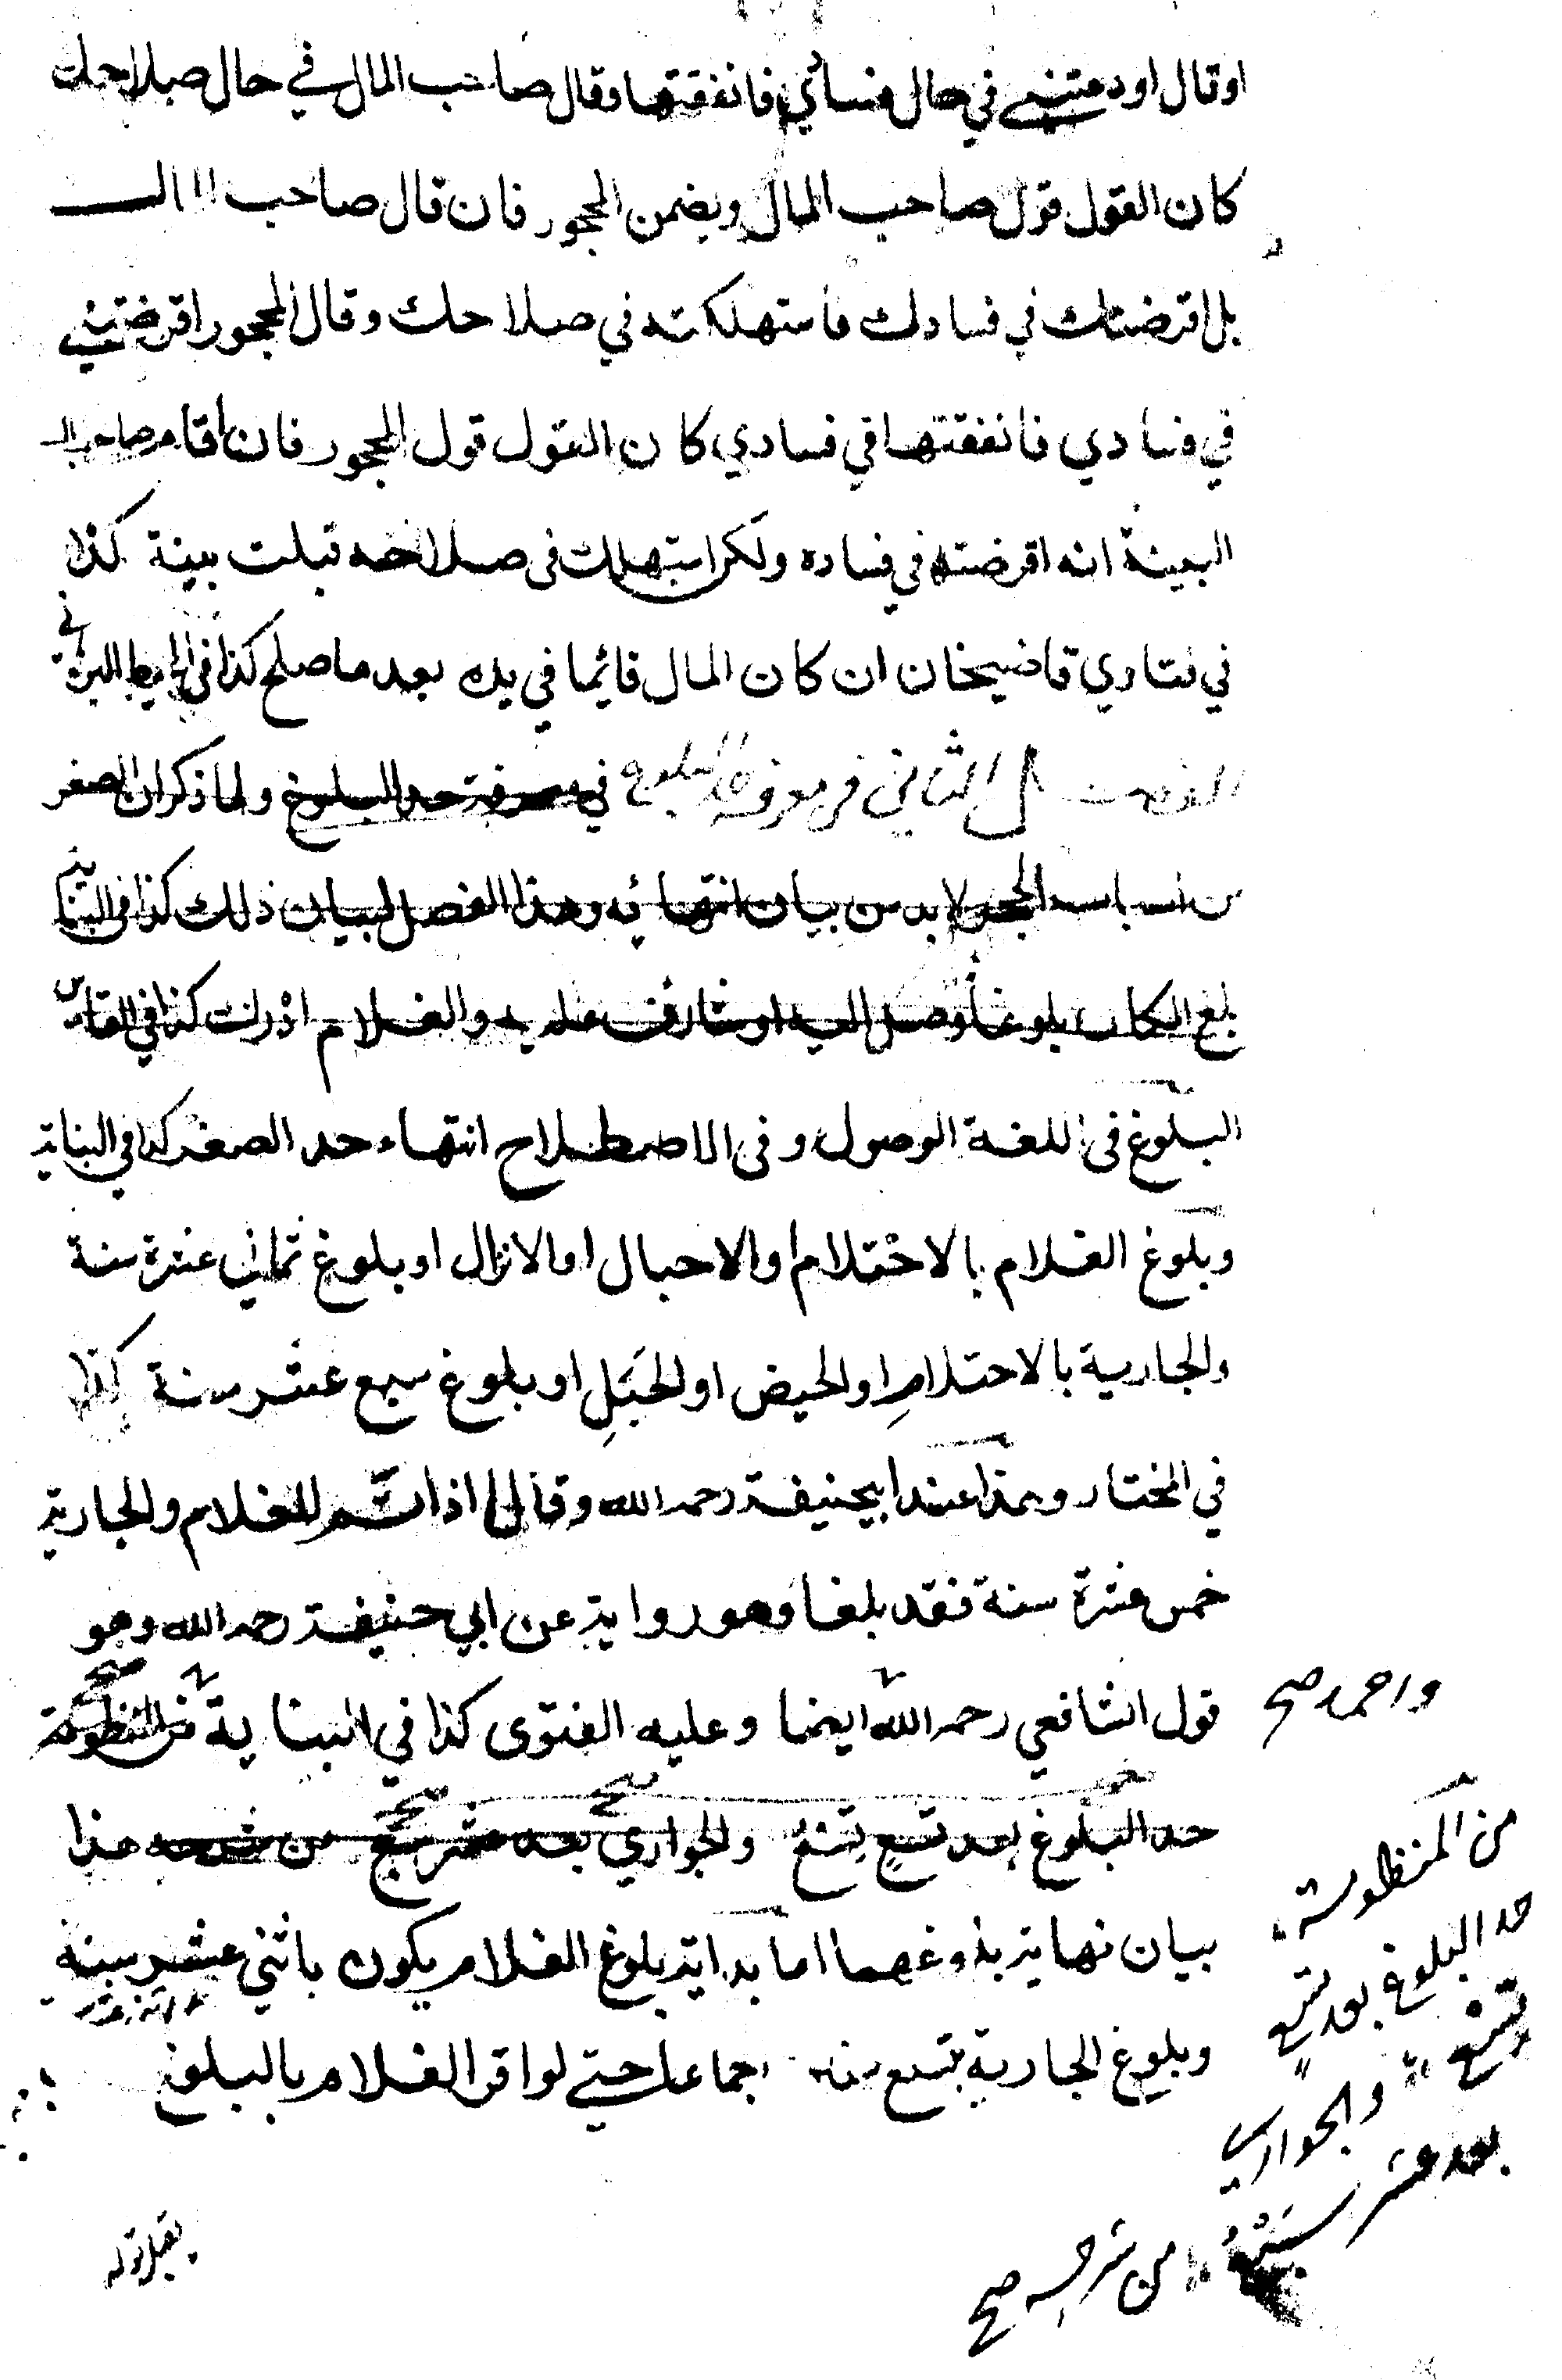 او قال اودعتني في حال فسادي فانفقتها وقال صاحب المال في حال صلاحك
كان القول قول صاحب المال ويضمن المحجور فان قال صاحب المال
بل اقرضتك في فسادك فاستهلكته في صلاحك وقال المحجور اقرضتني
في فسادي فانفقتها في فسادي كان القول قول المحجور فان اقام صاحب المال
البينة انه اقرضته في فساده ولكن استهلك في صلاحه قبلت بينة كذا
في فتاوي قاضيخان ان كان المال قائما في يده بعد ما صلح كذا في المحيط البرهاني
الفصل الثاني في معرفة حد البلوغ في معرفة حد البلوغ ولما ذكر ان الصغر
من اسباب الحجر لابد من بيان انتهائه وهذا الفصل لبيان ذلك كذا في البناية
بلغ المكان بلوغا وصل اليه او شارف عليه والغلام ادرك كذا في القاموس
البلوغ في اللغة الوصول وفي الاصطلاح انتهاء حد الصغر كذا في البناية
وبلوغ الغلام بالاحتلام او الاحبال او الانزال او بلوغ ثماني عشرة سنة
والجارية بالاحتلامِ او الحيض او الحَبَلِ او بلوغ سبع عشر سنة كذا
في المختار وهذا عند ابيحنيفة رحمه الله وقالا اذا تم للغلام والجارية
خمس عشرة سنة فقد بلغا وهو رواية عن ابي حنيفة رحمه الله وهو
قول الشافعي رحمه الله ايضا وعليه الفتوى كذا في البناية من المنظومة
واحمد صح
حد البلوغ بعد تسع تسع والجواري بعد عشر سبع من شرحه هذا
بيان نهاية بلوغهما اما بداية بلوغ الغلام يكون باثني عشر سنة
وبلوغ الجارية بتسع سنة اجماعا حتى لو اقر الغلام بالبلوغ
من المنظومة
حد البلوغ بعد تسع
تسع والجواري
بعد عشر سبع
من شرحه صح
يقبل قوله